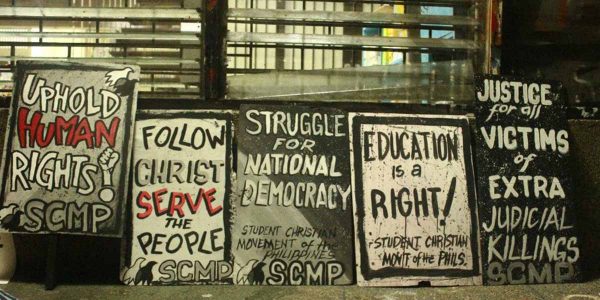 UPHOLD
HUMAN
RIGHTS!
SCMP
FOLLOW
CHRIST
SERVE
THE
PEOPLE
SCMP
STRUGGLE
FOR
NATIONAL
DEMOCRACY
STUDENT CHRISTIAN
MOVEMENT of the
PHILIPPINES
SCMP
EDUCATION
is a
RIGHT!
-STUDENT CHRISTIAN
MOV'T. of the PHILS.
JUSTICE
for all
VICTIMS
of
EXTRA
JUDICIAL
KILLINGS
SCMP